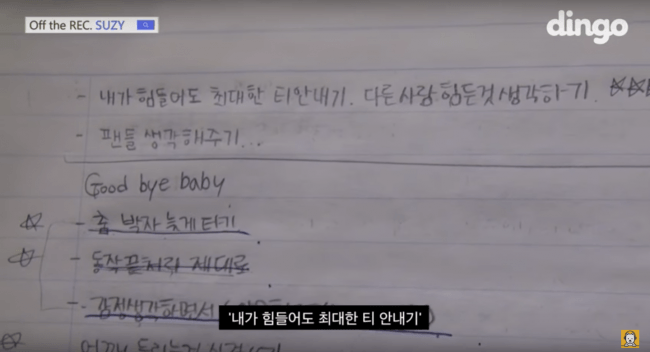 Off the REC. SUZY
dingo
- 내가 힘들어도 최대한 티안내기. 다른사람 힘든것 생각하기.
- 팬들 생각해주기...
Good bye baby
- 춤 박자 늦게타기
- 동작끝처리 제대로
- 감정생각하면서
'내가 힘들어도 최대한 티 안내기'